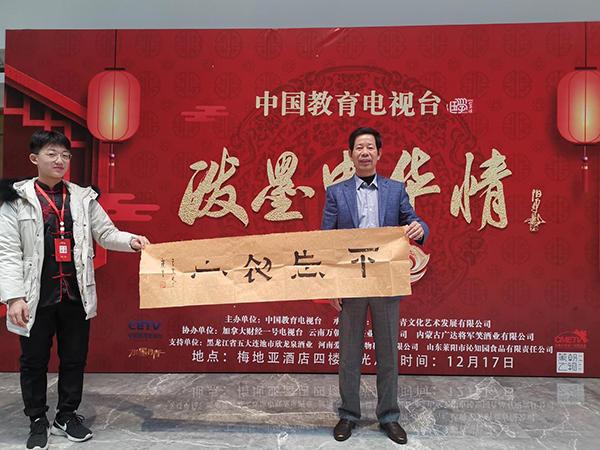 中国教育电视台
墨中华情
不忘初心
主办单位：中国教育电视台 承 青文化艺术发展有限公司
协办单位：加拿大财经一号电视台 云南万 业 公司 内蒙古广达将军笑酒业有限公司
支持单位：黑龙江省五大连池市欣龙泉酒业 河南爱 物 公司 山东莱阳市沁知园食品有限责任公司
地点：梅地亚酒店四楼 光 时间：12月17日
CETV
CMETV